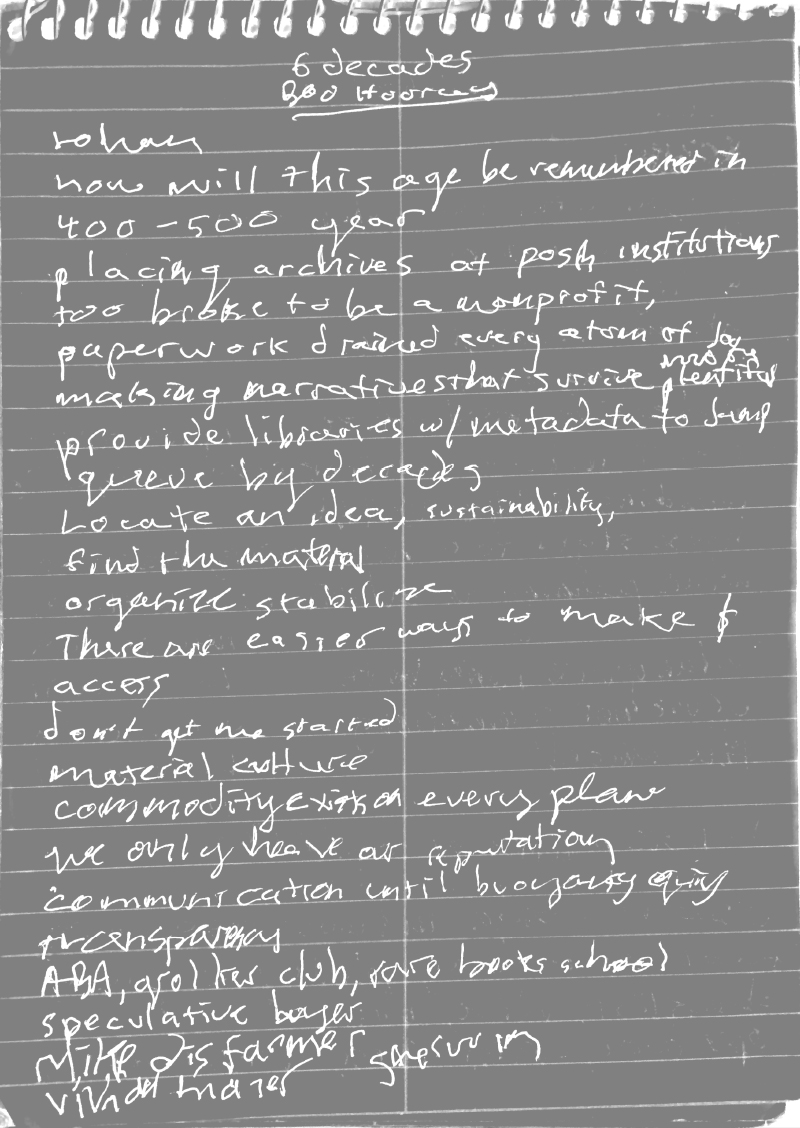 6 decades
Boo Hooray
rohan
how will this age be remembered in
400-500 year
placing archives at posh institutions
too broke to be a nonprofit,
paperwork drained every atom of joy
making narratives that survive
provide libraries w/ metadata to jump
queue by decades
Locate an idea, sustainability,
find the material
organize stabilize
There are easier ways to make $
access
don't get me started
material culture
commodity exist on every plane
we only have our reputation
communication until buoyancy
transparency
ABA, grolier club, rare books school
speculative buyer
Mike disfarmer
vivian maier